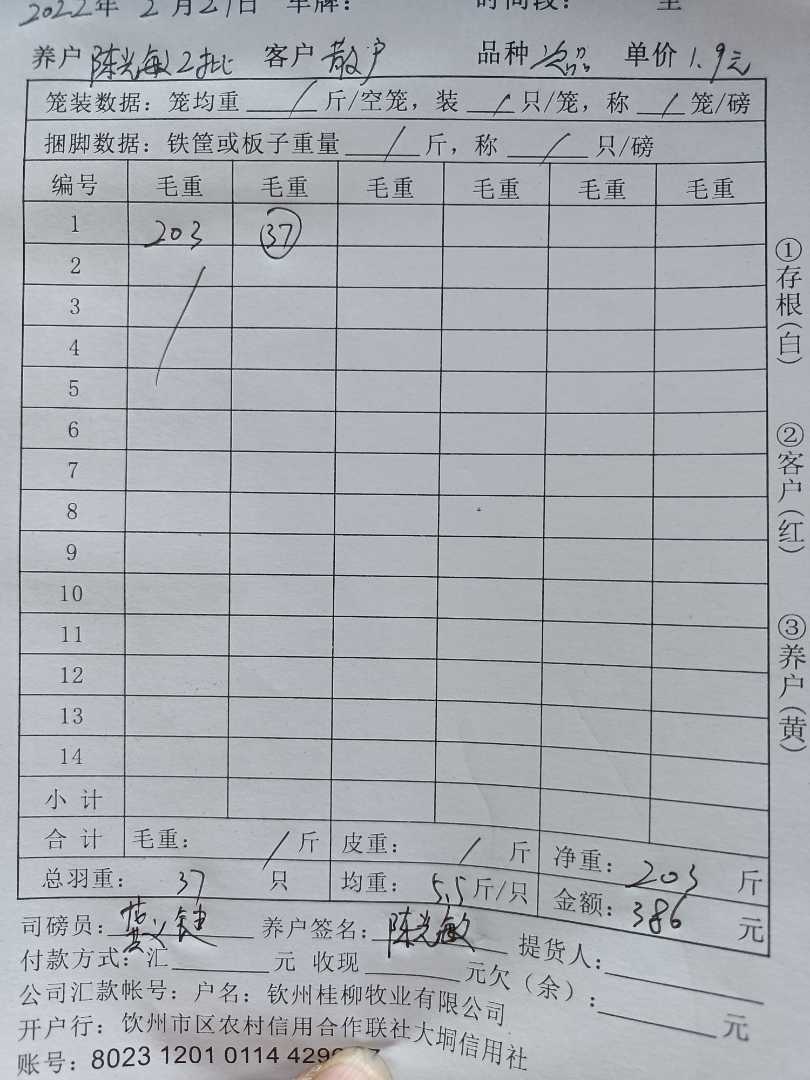 2022年 2月21日 车牌： 时间段： 至
养户 陈光敏2批 客户 散户 品种 次品 单价 1.9元
笼装数据：笼均重 / 斤/空笼，装 / 只/笼，称 / 笼/磅
捆脚数据：铁筐或板子重量 / 斤，称 / 只/磅
编号 毛重 毛重 毛重 毛重 毛重 毛重
1 203 37
2
3
4
5
6
7
8
9
10
11
12
13
14
小计
合计 毛重： / 斤 皮重： / 斤 净重：203 斤
总羽重： 37 只 均重：5.5斤/只 金额：386 元
司磅员： 养户签名：陈光敏 提货人：
付款方式：汇 元 收现 元欠（余）： 元
公司汇款帐号：户名：钦州桂柳牧业有限公司
开户行：饮州市区农村信用合作联社大垌信用社
账号：8023 1201 0114 429
①存根(白)
②客户(红)
③养户(黄)